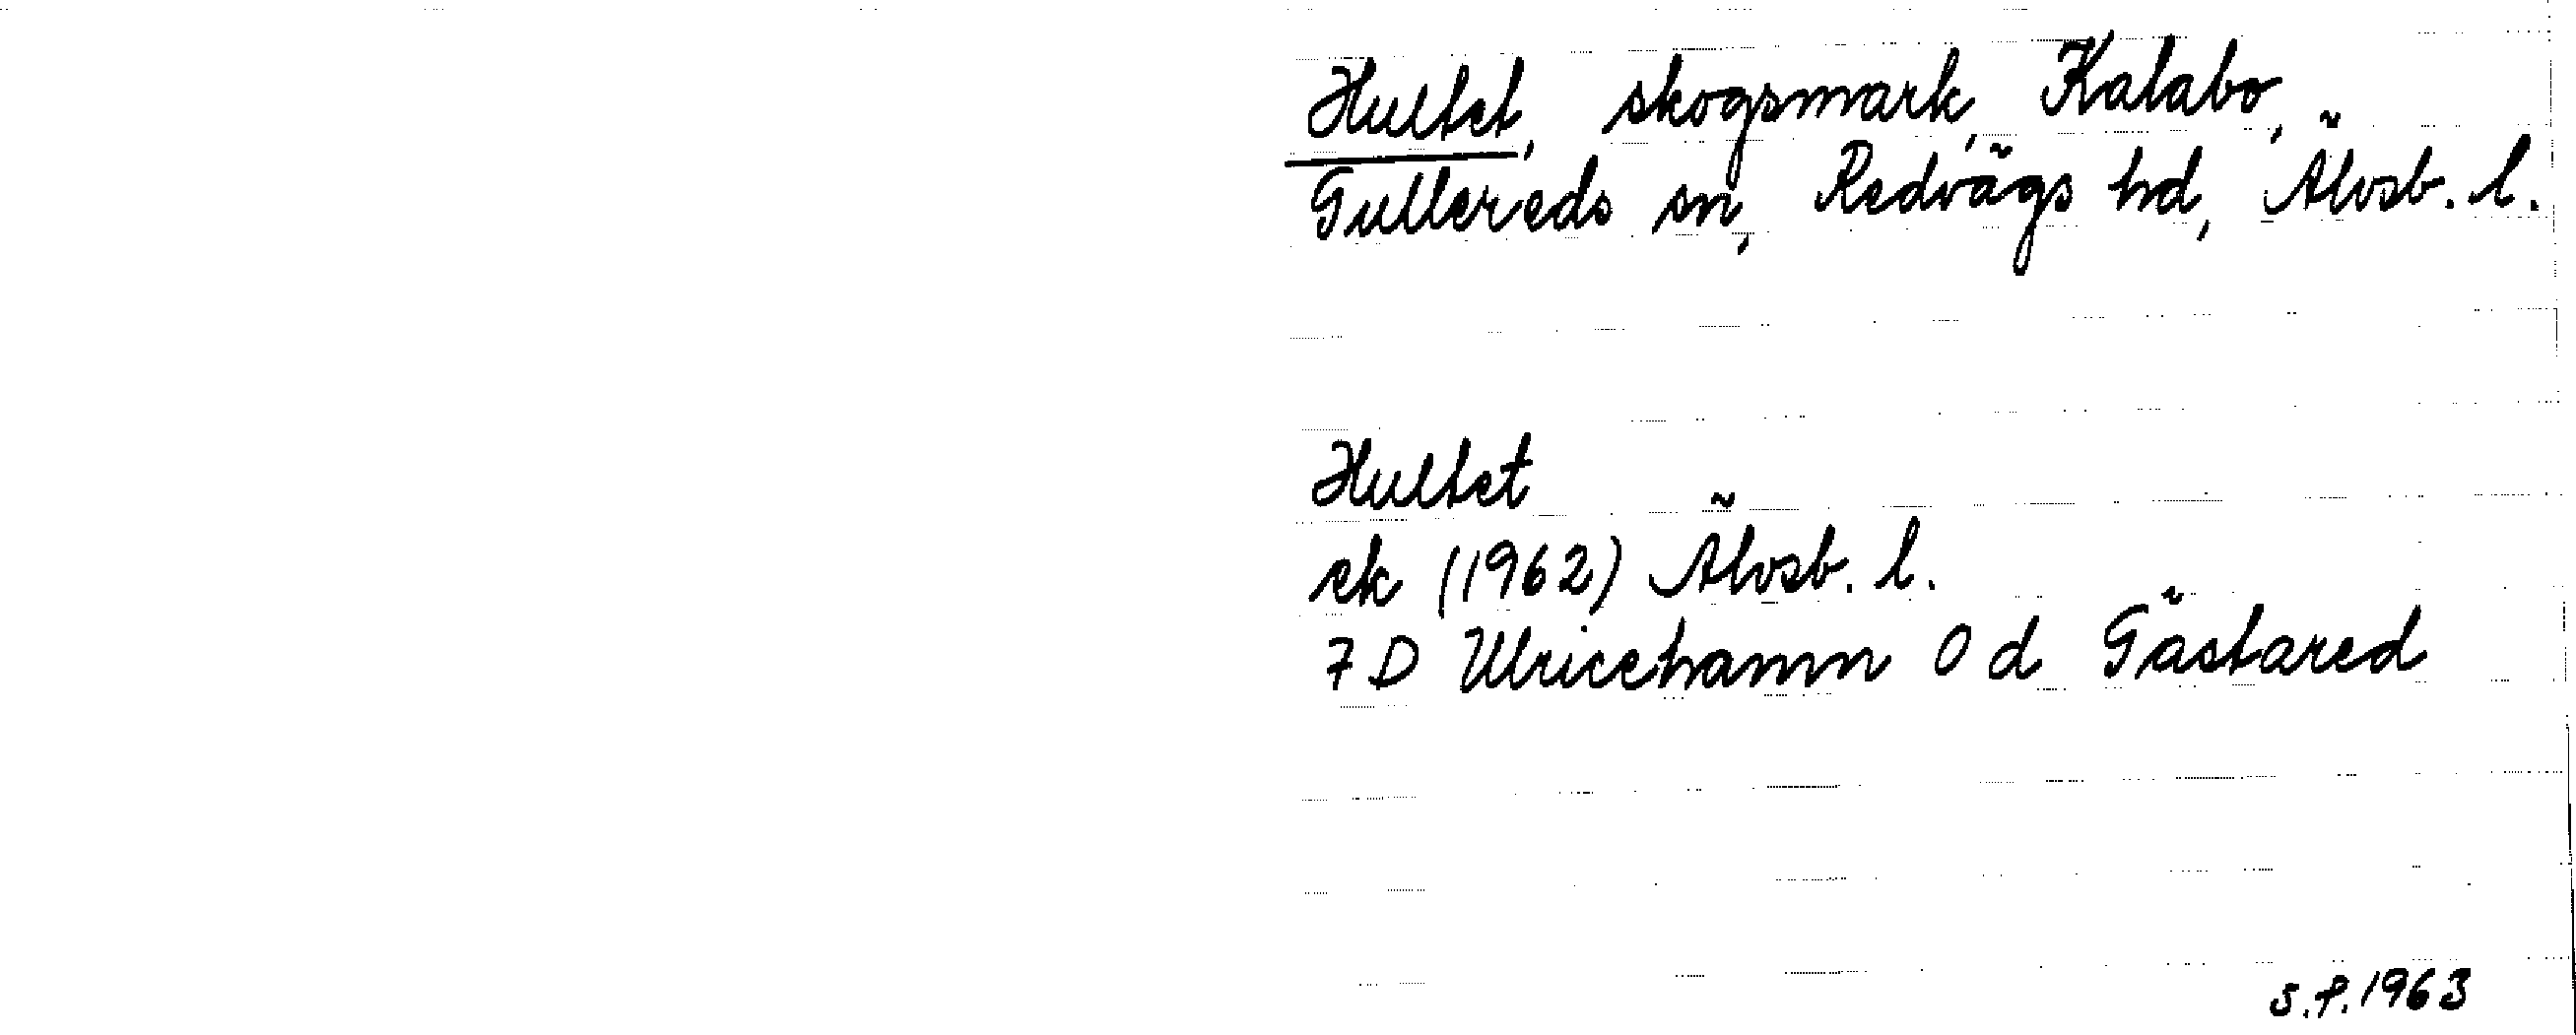 Hultet, skogsmark, Kalabo,
Gullereds sn, Redvägs hd, Älvsb. l.
Hultet
ek (1962) Älvsb. l.
7 D Ulricehamn 0 d Gästared
s.f. 1963